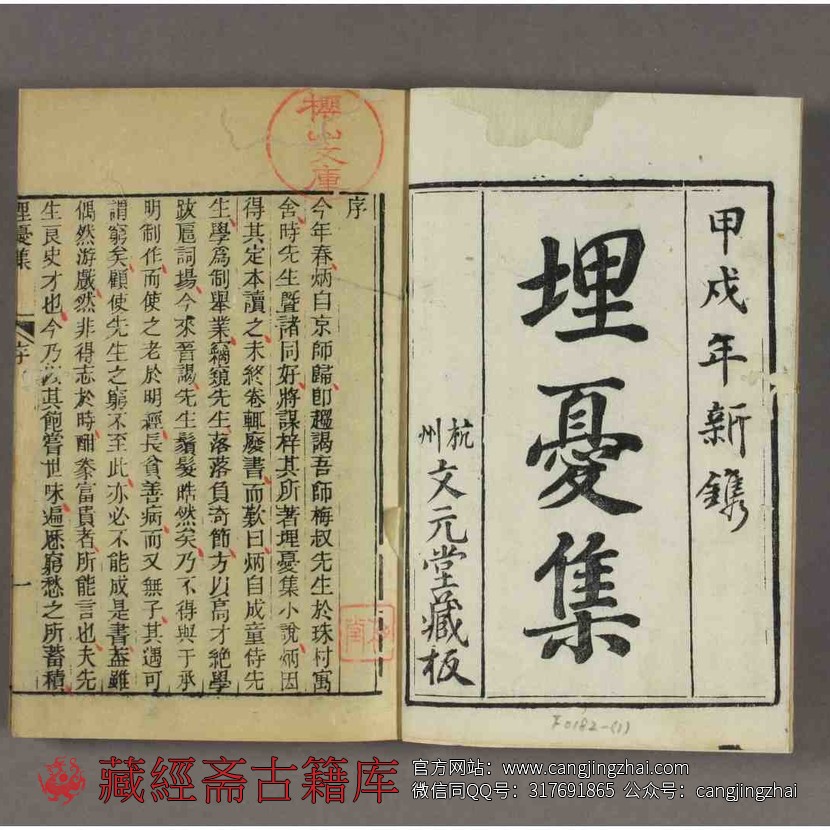 甲戍年新鐫
埋憂集
杭州文元堂藏板
櫻山文庫
序
今年春炳自京師歸卽趨謁吾師梅叔先生於珠村寓
舍時先生暨諸同好將謀梓其所著埋憂集小說炳因
得其定本讀之未終卷輒廢書而歎曰炳自成童侍先
生學爲制舉業竊窺先生落落負奇節方以高才絕學
跋扈詞場今來晉謁先生鬚髮皓然矣乃不得與于承
明制作而使之老於明經長貧善病而又無子其遇可
謂窮矣顧使先生之窮不至此亦必不能成是書蓋雖
偶然游戲然非得志於時酣豢富貴者所能言也夫先
生良史才也今乃以其飽嘗世味遍歷窮愁之所蓄積
埋憂集
序
一
F0182-(1)
藏經斋古籍库
官方网站：www.cangjingzhai.com
微信同QQ号：317691865 公众号：cangjingzhai